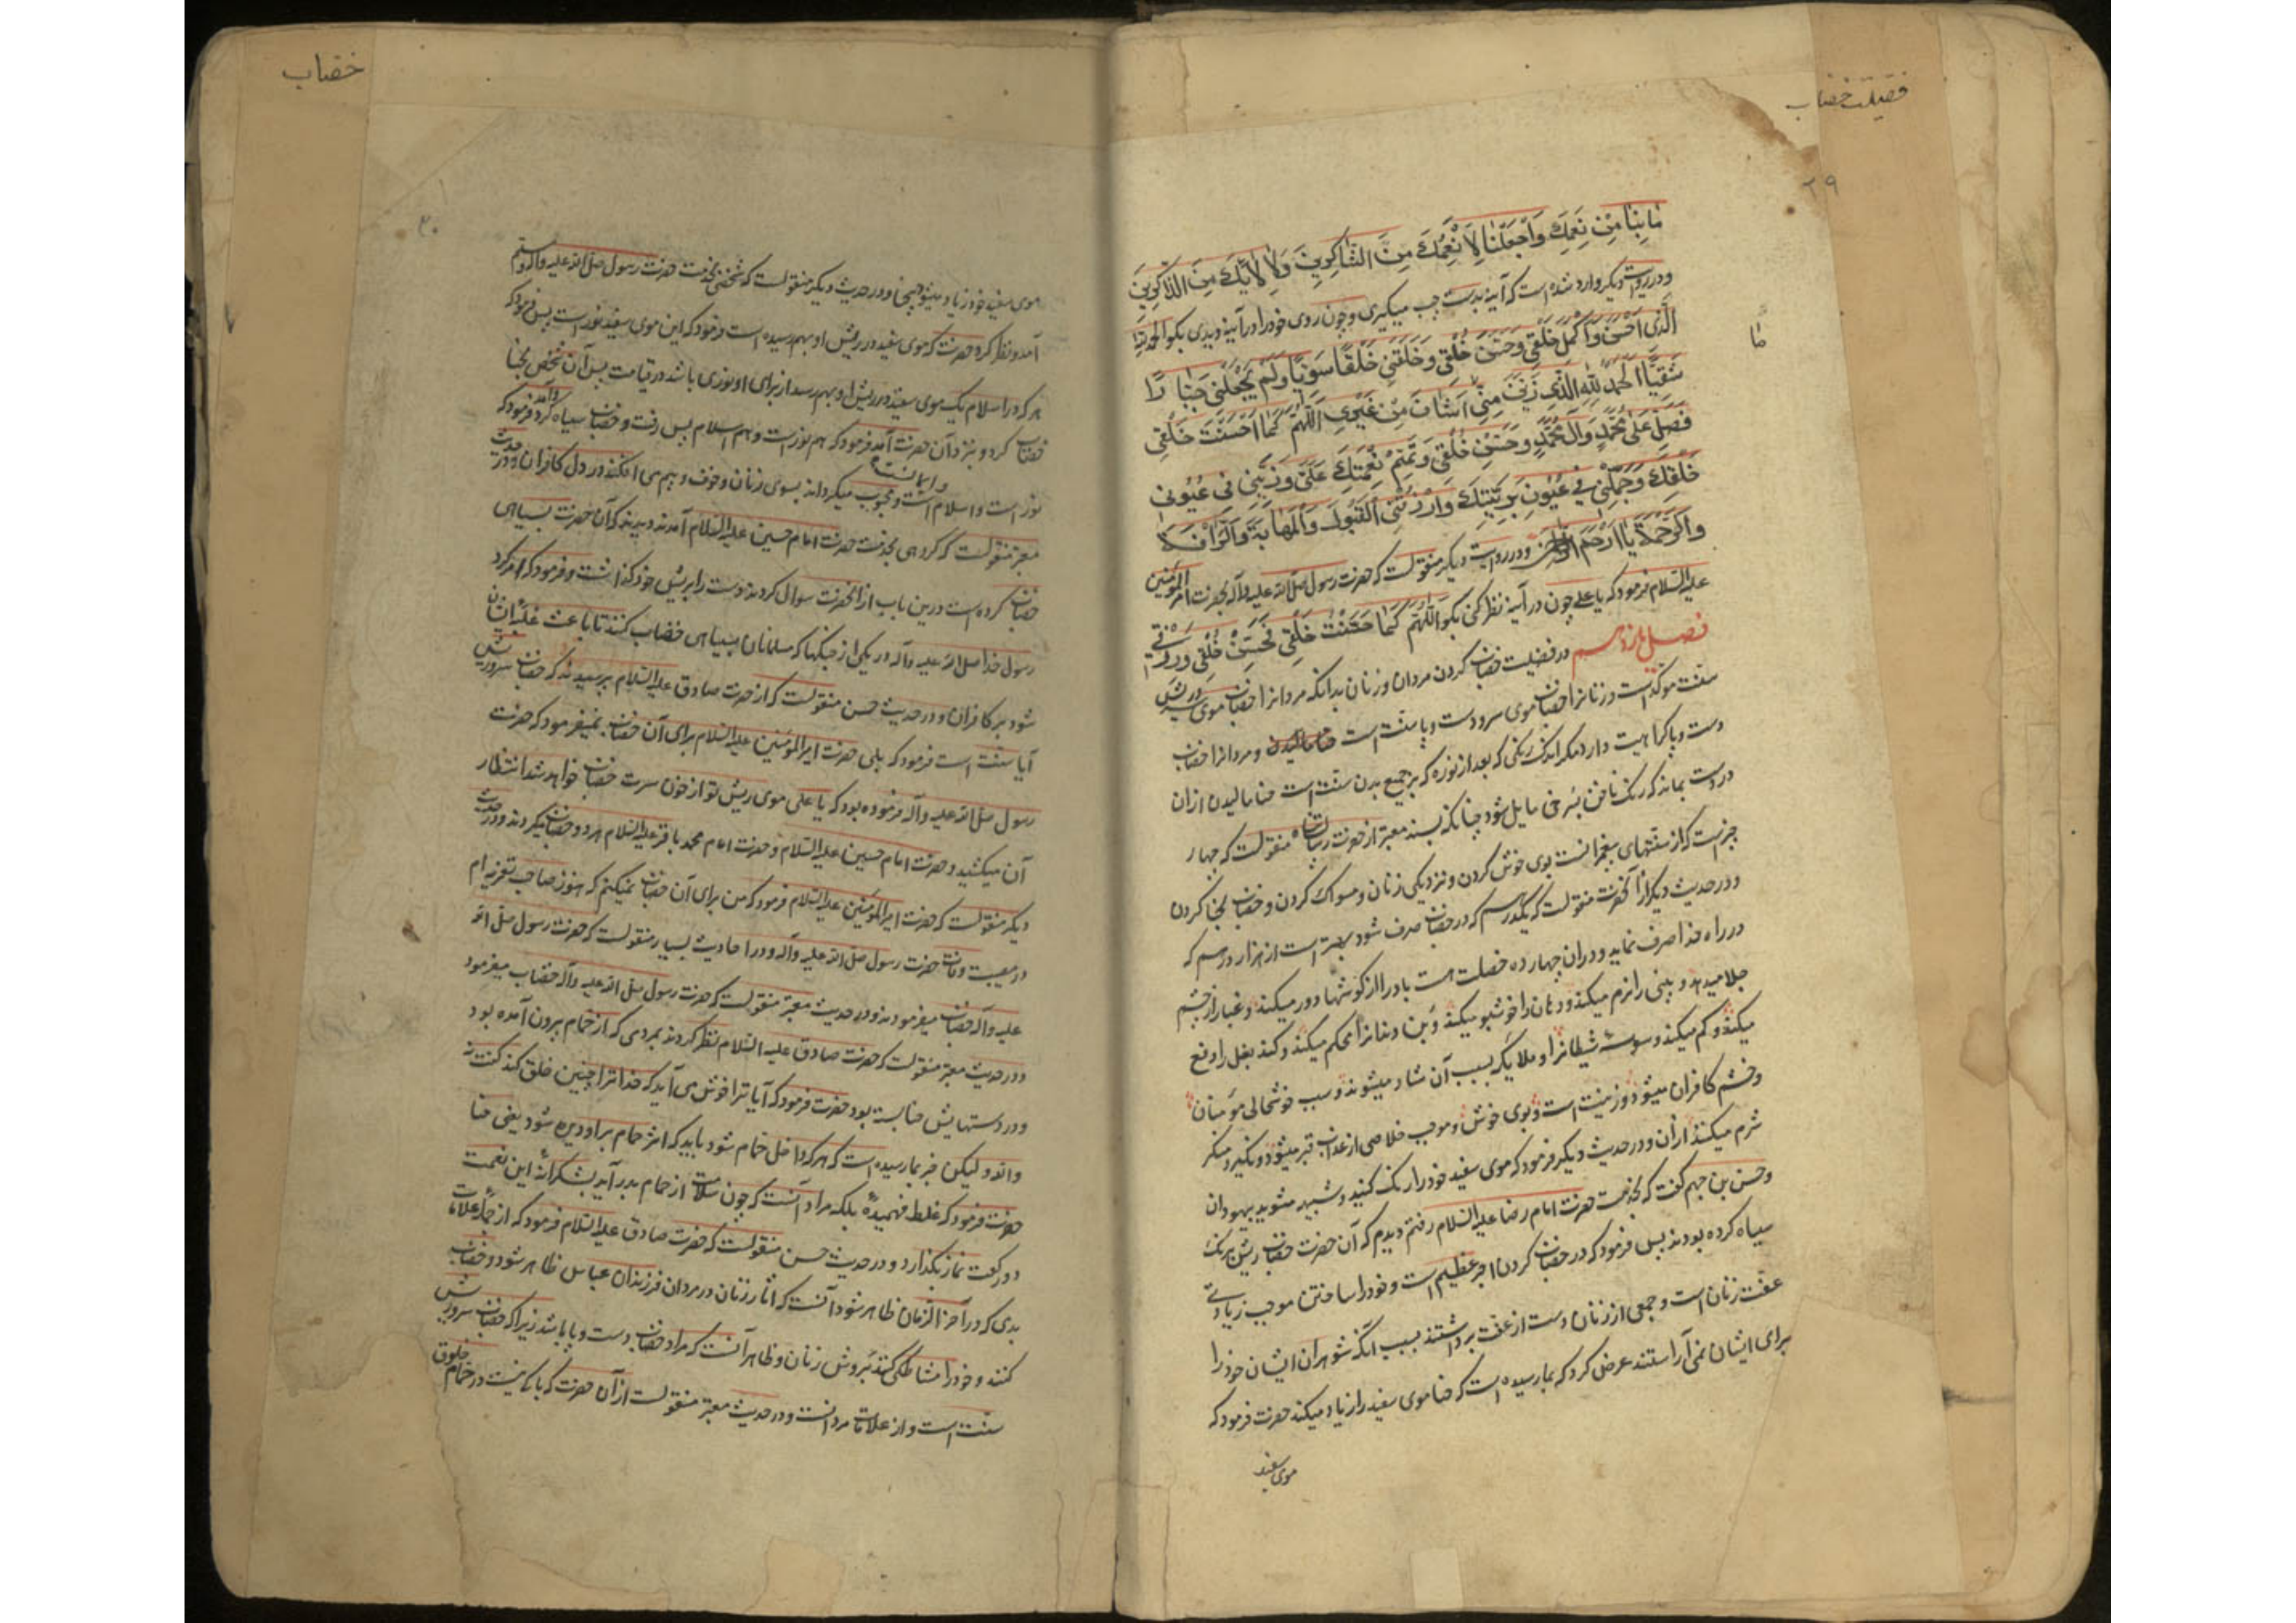 فضیلت خضاب
۲۹
مٰا بِنٰا مِنْ نِعَمِكَ وَاجْعَلْنٰا لِاَنْعُمِكَ مِنَ الشّٰاكِرِینَ وَلِاٰلٰائِكَ مِنَ الذّٰاكِرِینَ
ودر روایت دیکر وارد شده است که آینه بدست چپ میکیری وچون روی خود را در آینه دیدی بکو الحمد لله
الَّذِی اَحْسَنَ وَاَكْمَلَ خَلْقِی وَحَسَّنَ خُلُقِی وَخَلَقَنِی خَلْقًا سَوِیًّا وَلَمْ یَجْعَلْنِی جَبّٰارًا
مٰا
شَقِیًّا اَلْحَمْدُ لِلّٰهِ الَّذِی زَیَّنَ مِنِّی مٰا شٰانَ مِنْ غَیْرِی اَللّٰهُمَّ كَمٰا اَحْسَنْتَ خَلْقِی
فَصَلِّ عَلٰی مُحَمَّدٍ وَآلِ مُحَمَّدٍ وَحَسِّنْ خُلُقِی وَتَمِّمْ نِعْمَتَكَ عَلَیَّ وَزَیِّنِّی فِی عُیُونِ
خَلْقِكَ وَجَمِّلْنِی فِی عُیُونِ بَرِیَّتِكَ وَارْزُقْنِی الْقَبُولَ وَالْمَهٰابَةَ وَالرَّأْفَةَ
وَالرَّحْمَةَ یٰا اَرْحَمَ الرّٰاحِمِینَ ودر روایت دیکر منقولست که حضرت رسول صلی الله علیه وآله بحضرت امیرالمؤمنین
علیه السلام فرمود که یا علی چون در آینه نظر کنی بکو اَللّٰهُمَّ كَمٰا حَسَّنْتَ خَلْقِی فَحَسِّنْ خُلُقِی وَرِزْقِی
فصل یازدهم در فضیلت خضاب کردن مردان وزنان بدانکه مردانرا خضاب موی سر وریش
سنت مؤکد است وزنانرا خضاب موی سر ودست وپا سنت است ومردانرا خضاب
دست وپا کراهیت دارد مکر اندک رنکی که بعد از نوره که بر جمیع بدن سنت است حنا مالیدن ازان
در دست بماند که رنک ناخن بسرخی مایل شود چنانکه بسند معتبر از حضرت رسالت پناه منقولست که چهار
چیز است که از سنتهای پیغمبرانست بوی خوش کردن ونزدیکی زنان ومسواک کردن وخضاب بحنا کردن
ودر حدیث دیکر از آنحضرت منقولست که یکدرهم که در خضاب صرف شود بهتر است از هزار درهم که
در راه خدا صرف نماید ودران چهارده خصلت هست باد را از کوشها دور میکند وغبار از چشم
جلا میدهد وبینی را نرم میکند ودهان را خوشبو میکند وبن دندانرا محکم میکند وکند بغل را دفع
میکند وکم میکند وسوسه شیطانرا وملایکه بسبب آن شاد میشوند وسبب خوشحالی مؤمنان
وخشم کافران میشود وزینت است وبوی خوش وموجب خلاصی از عذاب قبر میشود ونکیر ومنکر
شرم میکنند ازان ودر حدیث دیکر فرمود که موی سفید خود را رنک کنید وشبیه مشوید بیهودان
وحسن بن جهم کفت که بخدمت حضرت امام رضا علیه السلام رفتم دیدم که آن حضرت خضاب ریش برنک
سیاه کرده بودند پس فرمود که در خضاب کردن اجر عظیم است وخود را ساختن موجب زیادتی
عفت زنان است وجمعی از زنان دست از عفت برداشتند بسبب آنکه شوهران ایشان خود را
برای ایشان نمی آراستند عرض کرد که بما رسیده است که حنا موی سفید را زیاد میکند حضرت فرمود که
موی سفید
خضاب
۳۰
موی سفید خود زیاد میشود بحنا ودر حدیث دیکر منقولست که شخصی بخدمت حضرت رسول صلی الله علیه وآله وسلم
آمد ونظر کرد حضرت که موی سفید در ریش او بهم رسیده است فرمود که این موی سفید نور است پس فرمود که
هر که در اسلام یک موی سفید در ریش او بهم رسد از برای او نوری باشد در قیامت پس آن شخص بحنا
خضاب کرد وبنزد آن حضرت آمد فرمود که هم نور است وهم اسلام پس رفت وخضاب سیاه کرد وآمد فرمود که
نور است واسلام است وایمانست ومحبوب میکرداند بسوی زنان وخوف وبیم می افکند در دل کافران ودر حدیث
معتبر منقولست که کروهی بخدمت حضرت امام حسین علیه السلام آمدند دیدند که آن حضرت بسیاهی
خضاب کرده است درین باب از آنحضرت سوال کردند دست را بر ریش خود کذاشت وفرمود که امر کرد
رسول خدا صلی الله علیه وآله در یکی از جنکها که مسلمانان بسیاهی خضاب کنند تا باعث غلبه ایشان
شود بر کافران ودر حدیث حسن منقولست که از حضرت صادق علیه السلام پرسیدند که خضاب سر وریش
آیا سنت است فرمود که بلی حضرت امیرالمؤمنین علیه السلام برای آن خضاب نمیفرمود که حضرت
رسول صلی الله علیه وآله فرموده بود که یا علی موی ریش تو از خون سرت خضاب خواهد شد انتظار
آن میکشید وحضرت امام حسین علیه السلام وحضرت امام محمد باقر علیه السلام هر دو خضاب میکردند ودر حدیث
دیکر منقولست که حضرت امیرالمؤمنین علیه السلام فرمود که من برای آن خضاب نمیکنم که هنوز صاحب تعزیه ام
در مصیبت وفات حضرت رسول صلی الله علیه وآله ودر احادیث بسیار منقولست که حضرت رسول صلی الله
علیه وآله خضاب میفرمودند ودر حدیث معتبر منقولست که حضرت رسول صلی الله علیه وآله خضاب میفرمود
ودر حدیث معتبر منقولست که حضرت صادق علیه السلام نظر کردند بمردی که از حمام بیرون آمده بود
ودر دستهایش حنا بسته بود حضرت فرمود که آیا ترا خوش می آید که خدا ترا چنین خلق کند کفت نه
والله ولیکن خبر بما رسیده است که هر که داخل حمام شود باید که اثر حمام بر او دیده شود یعنی حنا
حضرت فرمود که غلط فهمیدهٔ بلکه مراد آنست که چون سلامت از حمام بدر آید بشکرانهٔ این نعمت
دو رکعت نماز بکذارد ودر حدیث حسن منقولست که حضرت صادق علیه السلام فرمود که از جمله علامات
بدی که در آخر الزمان ظاهر شود آنست که آثار زنان در مردان فرزندان عباس ظاهر شود وخضاب
کنند وخود را مشاطکی کنند بروش زنان وظاهر آنست که مراد خضاب دست وپا باشد زیرا که خضاب سر وریش
سنت است واز علامات مردانست ودر حدیث معتبر منقولست از آن حضرت که باکی نیست در حمام خلوق